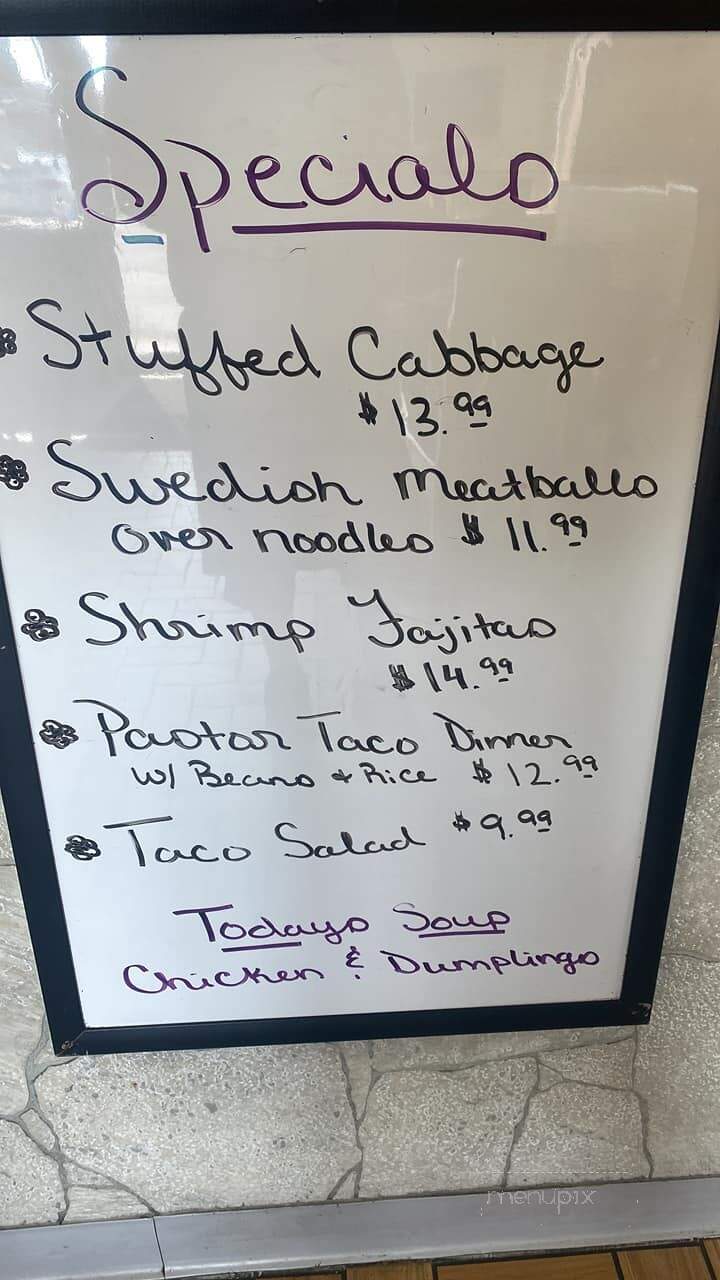 Specials
Stuffed Cabbage
$13.99
Swedish Meatballs
over noodles $11.99
Shrimp Fajitas
$14.99
Pastor Taco Dinner
w/ Beans & Rice $12.99
Taco Salad $9.99
Todays Soup
Chicken & Dumplings
menupix